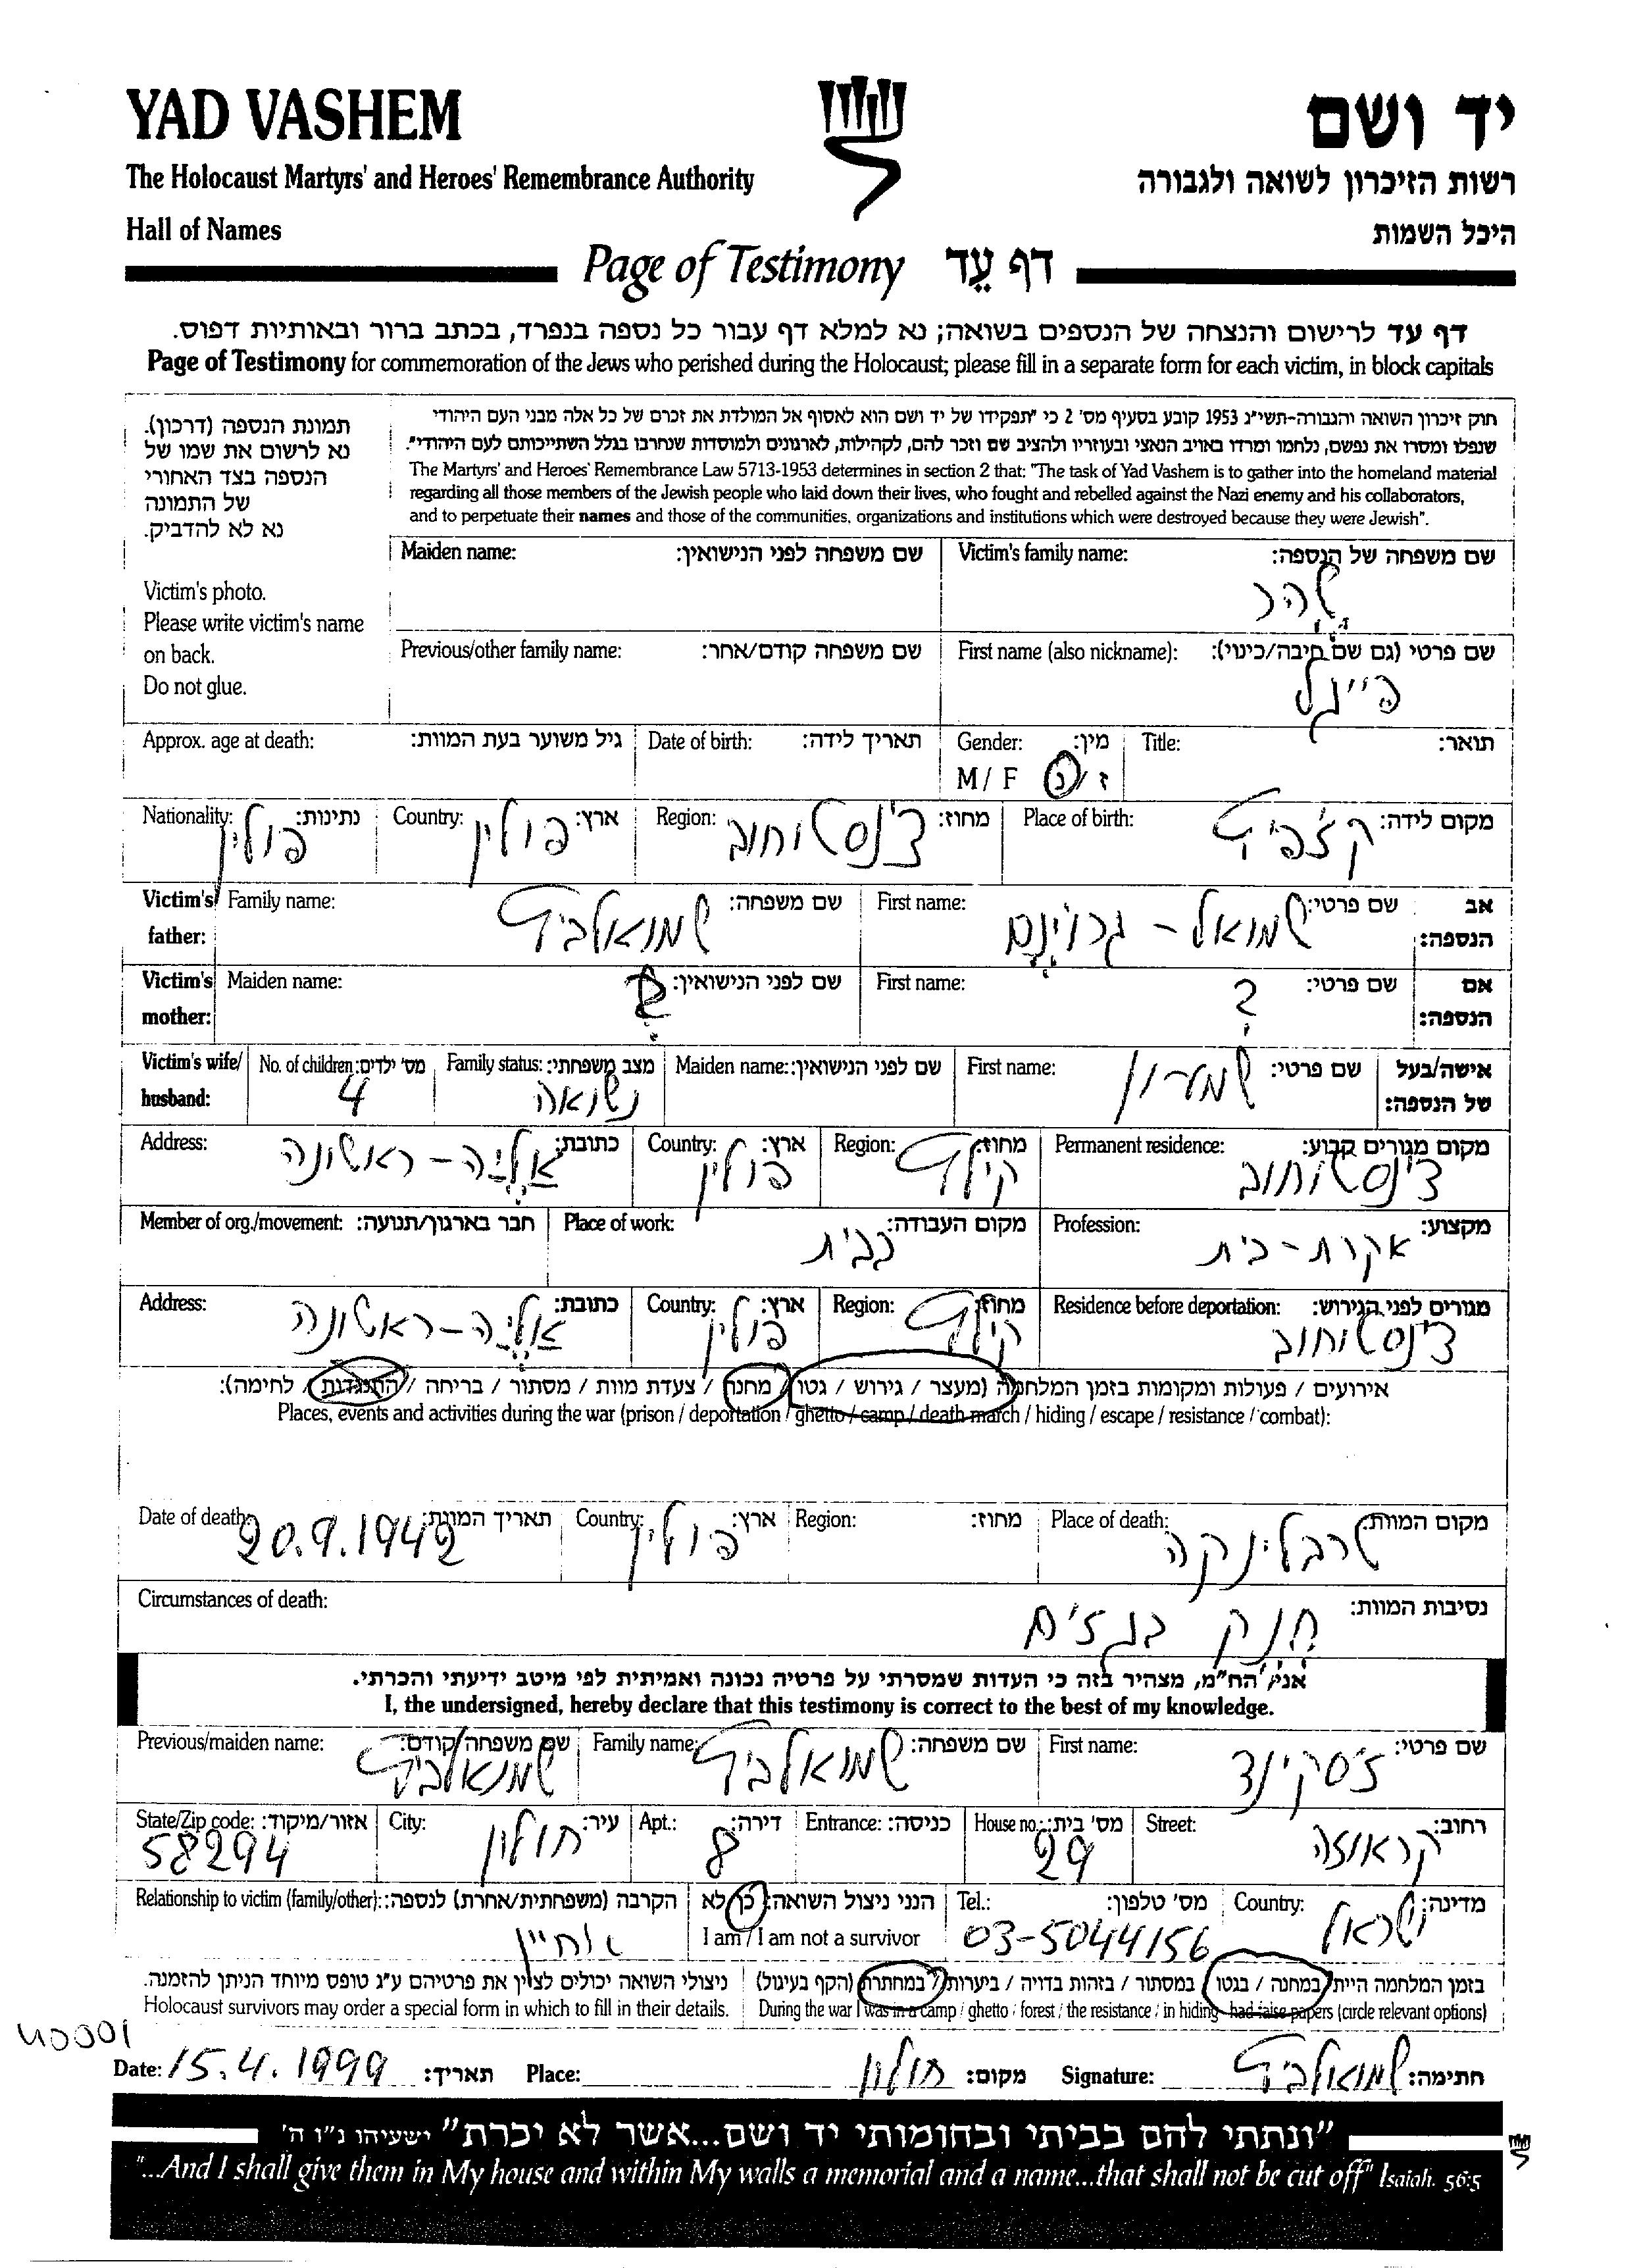 YAD VASHEM
יד ושם
The Holocaust Martyrs' and Heroes' Remembrance Authority
רשות הזיכרון לשואה ולגבורה
Hall of Names
היכל השמות
Page of Testimony דף עֵד
דף עד לרישום והנצחה של הנספים בשואה; נא למלא דף עבור כל נספה בנפרד, בכתב ברור ובאותיות דפוס.
Page of Testimony for commemoration of the Jews who perished during the Holocaust; please fill in a separate form for each victim, in block capitals
חוק זיכרון השואה והגבורה-תשי"ג 1953 קובע בסעיף מס' 2 כי "תפקידו של יד ושם הוא לאסוף אל המולדת את זכרם של כל אלה מבני העם היהודי
שנפלו ומסרו את נפשם, נלחמו ומרדו באויב הנאצי ובעוזריו ולהציב שם וזכר להם, לקהילות, לארגונים ולמוסדות שנחרבו בגלל השתייכותם לעם היהודי".
The Martyrs' and Heroes' Remembrance Law 5713-1953 determines in section 2 that: "The task of Yad Vashem is to gather into the homeland material
regarding all those members of the Jewish people who laid down their lives, who fought and rebelled against the Nazi enemy and his collaborators,
and to perpetuate their names and those of the communities, organizations and institutions which were destroyed because they were Jewish".
תמונת הנספה (דרכון).
נא לרשום את שמו של
הנספה בצד האחורי
של התמונה
נא לא להדביק.
Victim's photo.
Please write victim's name
on back.
Do not glue.
שם משפחה של הנספה: Victim's family name:
שם משפחה לפני הנישואין: Maiden name:
שם פרטי (גם שם חיבה/כינוי): First name (also nickname):
פייגל
שם משפחה קודם/אחר: Previous/other family name:
תואר: Title:
מין: Gender:
ז/נ M/ F
תאריך לידה: Date of birth:
גיל משוער בעת המוות: Approx. age at death:
מקום לידה: Place of birth:
מחוז: Region: צ'נסטוחוב
ארץ: Country: פולין
נתינות: Nationality: פולין
אב הנספה: Victim's father:
שם פרטי: First name: שמואל-
שם משפחה: Family name: שמואלביץ
אם הנספה: Victim's mother:
שם פרטי: First name: ?
שם לפני הנישואין: Maiden name: ?
אישה/בעל של הנספה: Victim's wife/ husband:
שם פרטי: First name: שמעון
שם לפני הנישואין: Maiden name:
מצב משפחתי: Family status: נשואה
מס' ילדים: No. of children: 4
מקום מגורים קבוע: Permanent residence: צ'נסטוחוב
מחוז: Region: קילץ
ארץ: Country: פולין
כתובת: Address: אליה-ראשונה
מקצוע: Profession: אקרת-בית
מקום העבודה: Place of work: בבית
חבר בארגון/תנועה: Member of org./movement:
מגורים לפני הגירוש: Residence before deportation: צ'נסטוחוב
מחוז: Region: קילץ
ארץ: Country: פולין
כתובת: Address: אליה-ראשונה
אירועים / פעולות ומקומות בזמן המלחמה (מעצר / גירוש / גטו / מחנה / צעדת מוות / מסתור / בריחה / התנגדות / לחימה):
Places, events and activities during the war (prison / deportation / ghetto / camp / death march / hiding / escape / resistance / combat):
מקום המוות: Place of death: טרבלינקה
מחוז: Region:
ארץ: Country: פולין
תאריך המוות: Date of death: 20.9.1942
נסיבות המוות: Circumstances of death:
חנק בגזים
אני, הח"מ, מצהיר בזה כי העדות שמסרתי על פרטיה נכונה ואמיתית לפי מיטב ידיעתי והכרתי.
I, the undersigned, hereby declare that this testimony is correct to the best of my knowledge.
שם פרטי: First name: ז'סקינד
שם משפחה: Family name: שמואלביץ
שם משפחה קודם: Previous/maiden name: שמואלביץ
רחוב: Street: קראוזה
מס' בית: House no.: 29
כניסה: Entrance:
דירה: Apt.: 8
עיר: City: חולון
אזור/מיקוד: State/Zip code: 58294
מדינה: Country: ישראל
מס' טלפון: Tel.: 03-5044156
הנני ניצול השואה: כן לא
I am / I am not a survivor
הקרבה (משפחתית/אחרת) לנספה: Relationship to victim (family/other): אחיין
בזמן המלחמה הייתי במחנה / בגטו / במסתור / בזהות בדויה / ביערות / במחתרת (הקף בעיגול)
During the war I was in a camp / ghetto / forest / the resistance / in hiding - had false papers (circle relevant options)
ניצולי השואה יכולים לציין את פרטיהם ע"ג טופס מיוחד הניתן להזמנה.
Holocaust survivors may order a special form in which to fill in their details.
חתימה: Signature: שמואלביץ
מקום: Place: חולון
תאריך: Date: 15.4.1999
"ונתתי להם בביתי ובחומותי יד ושם...אשר לא יכרת" ישעיהו נ"ו ה'
"...And I shall give them in My house and within My walls a memorial and a name...that shall not be cut off" Isaiah. 56:5